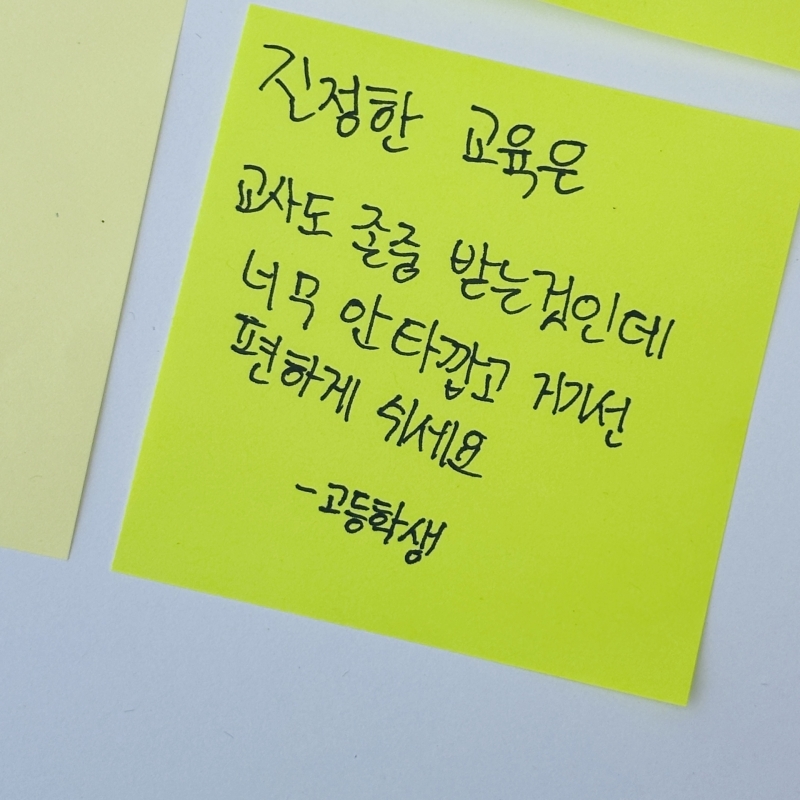 진정한 교육은
교사도 존중 받는것인데
너무 안타깝고 거기선
편하게 쉬세요
-고등학생